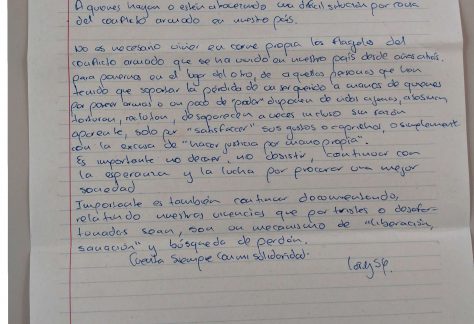 A quienes hayan o estén atravesando una difícil situación por causa
del conflicto armado en nuestro país.
No es necesario vivir en carne propia los flagelos del
conflicto armado que se ha vivido en nuestro país desde años atrás.
para ponernos en el lugar del otro, de aquellas personas que han
tenido que soportar la pérdida de un ser querido a manos de quienes
por poseer armas o un poco de "poder" disponen de vidas ajenas, abusan,
torturan, violan, desaparecen a veces incluso sin razón
aparente, solo por "satisfacer" sus gustos o caprichos, o simplemente
con la excusa de "hacer justicia por mano propia".
Es importante no decaer, no desistir, continuar con
la esperanza y la lucha por procurar una mejor
sociedad
Importante es también continuar documentando,
relatando nuestras vivencias que por tristes o desafor-
tunadas sean, son un mecanismo de "liberación,
sanación" y búsqueda de perdón.
Cuenta siempre con mi solidaridad.